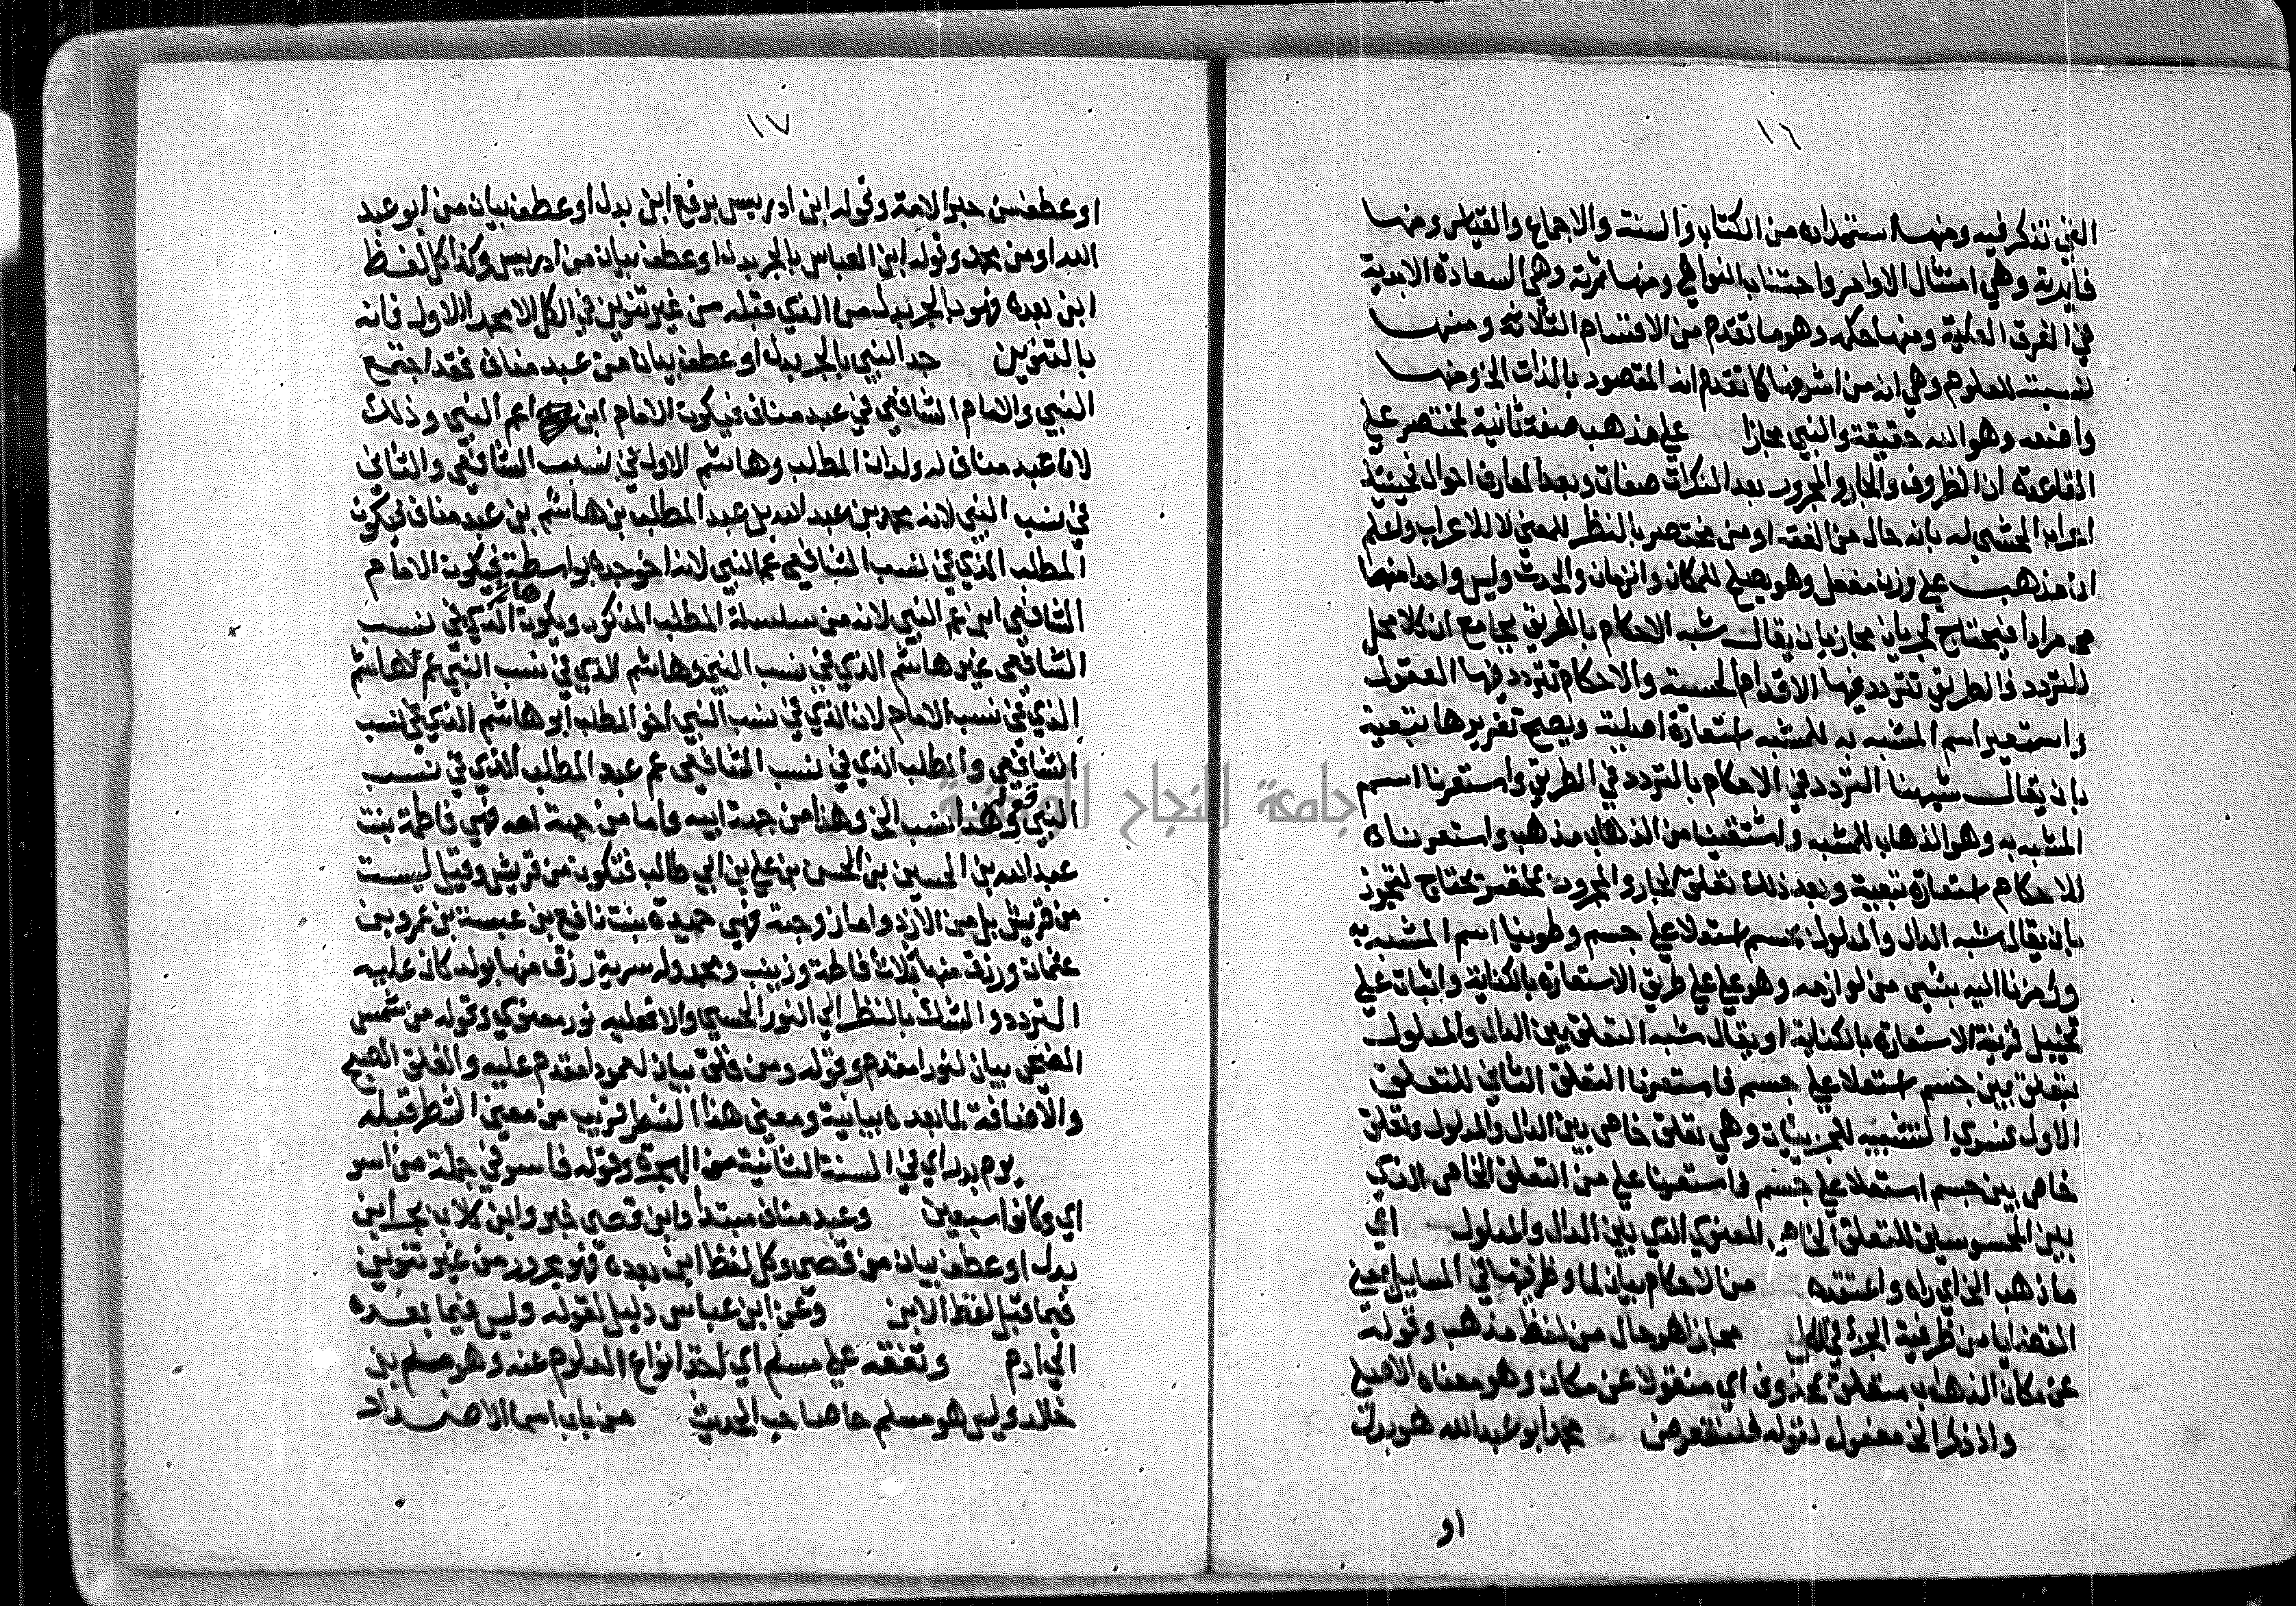 ١٦
التي تذكر فيه ومنها استمداده من الكتاب والسنة والاجماع والقياس ومنها
فايدته وهي امتثال الاوامر واجتناب النواهي ومنها ثمرته وهي السعادة الابدية
في الغرف العلية ومنها حكمه وهو ما تقدم من الاقسام الثلاثة ومنها
نسبته للعلوم وهي انه من اشرفها كما تقدم انه المقصود بالذات الخ ومنها
واضعه وهو الله حقيقة والنبي مجازا على مذهب صفة ثانية لمختصر على
القاعدة ان الظروف والجار والمجرور بعد النكرات صفات وبعد المعارف احوال فحينئذ
اعراب المحشي له بانه حال من الفقه او من مختصر بالنظر للمعنى لا للاعراب واعلم
ان مذهب على وزن مفعل وهو يصلح للمكان والزمان والحدث وليس واحدا منها
هي مرادا فيحتاج لجريان مجاز بان يقال شبه الاحكام بالطريق بجامع ان كلا محل
للتردد فالطريق تتردد فيها الاقدام الحسية والاحكام تتردد فيها العقول
واستعير اسم المشبه به للمشبه استعارة اصلية ويصح تقريرها تبعية
بان يقال شبهنا التردد في الاحكام بالتردد في الطريق واستعرنا اسم
المشبه به وهو الذهاب للمشبه واشتقينا من الذهاب مذهب واستعرناه
للاحكام استعارة تبعية وبعد ذلك تعلق الجار والمجرور بمختصر يحتاج لتجوز
بان يقال شبه الدال والمدلول بجسم استعلا على جسم وطوينا اسم المشبه به
ورمزنا اليه بشي من لوازمه وهو على على طريق الاستعارة بالكناية واثبات على
تخييل قرينة الاستعارة بالكناية او يقال شبه التعلق بين الدال والمدلول
بتعلق بين جسم استعلا على جسم فاستعرنا التعلق الثاني للتعلق
الاول فسرى التشبيه للجزييات وهي تعلق خاص بين الدال والمدلول وتعلق
خاص بين جسم استعلا على جسم فاستعرنا على من التعلق الخاص الذي
بين المحسوسين للتعلق الخاص المعنوي الذي بين الدال والمدلول اي
ما ذهب الخ اي راه واعتقده من الاحكام بيان لما وظرفيتها في المسايل بمعنى
القضايا من ظرفية الجزء في الكل مجازا هو حال من لفظ مذهب وقوله
عن مكان الذهاب متعلق بمحذوف اي منقولا عن مكان وهو معناه الاصلي
واذ ذكر الخ معمول لقوله فلنتعرض محمد ابو عبدالله هو بدل
او
١٧
او عطف من حبر الامة وقوله ابن ادريس برفع ابن بدل او عطف بيان من ابو عبد
الله او من محمد وقوله ابن العباس بالجر بدل او عطف بيان من ادريس وكذا كل لفظ
ابن بعده فهو بالجر بدل من الذي قبله من غير تنوين في الكل الا محمد الاول فانه
بالتنوين جد النبي بالجر بدل او عطف بيان من عبد مناف فقد اجتمع
النبي والامام الشافعي في عبد مناف فيكون الامام ابن عم النبي وذلك
لان عبد مناف له ولدان المطلب وهاشم الاول في نسب الشافعي والثاني
في نسب النبي لانه محمد بن عبد الله بن عبد المطلب بن هاشم بن عبد مناف فيكون
المطلب الذي في نسب الشافعي عم النبي لانه اخو جده بواسطة فيكون الامام
الشافعي ابن عم النبي لانه من سلسلة المطلب المذكور ويكون هاشم الذي في نسب
الشافعي غير هاشم الذي في نسب النبي وهاشم الذي في نسب النبي عم لهاشم
الذي في نسب الامام لان الذي في نسب النبي اخو المطلب ابو هاشم الذي في نسب
الشافعي والمطلب الذي في نسب الشافعي عم عبد المطلب الذي في نسب
النبي وقوله هذا نسب الخ وهذا من جهة ابيه واما من جهة امه فهي فاطمة بنت
عبدالله بن الحسين بن الحسن بن علي بن ابي طالب فتكون من قريش وقيل ليست
من قريش بل من الازد واما زوجته فهي حميدة بنت نافع بن عبسة بن عمرو بن
عثمان ورزق منها بثلاث فاطمة وزينب ومحمد وله سرية رزق منها بولد كان عليه
التردد والشك بالنظر الى النور الحسي والا فعليه نور معنوي وقوله من شمس
الضحى بيان لنورا مقدم وقوله ومن فلق بيان لعمودا مقدم عليه والفلق الصبح
والاضافة لما بعده بيانية ومعنى هذا الشطر قريب من معنى الشطر قبله
يوم بدر اي في السنة الثانية من الهجرة وقوله فاسر في جملة من اسر
اي وكانوا سبعين وعبد مناف مبتدا وابن قصى خبر وابن كلاب بجر ابن
بدل او عطف بيان من قصى وكل لفظ ابن بعده فهو مجرور من غير تنوين
فيما قبل لفظ الابن وعن ابن عباس دليل لقوله وليس فيما بعده
الى ادم وتفقه على مسلم اي اخذ انواع العلوم عنه وهو مسلم بن
خالد وليس هو مسلم صاحب الحديث من باب اسما الاضداد
جامعة النجاح الوطنية